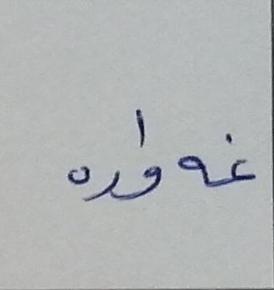 غەوارە